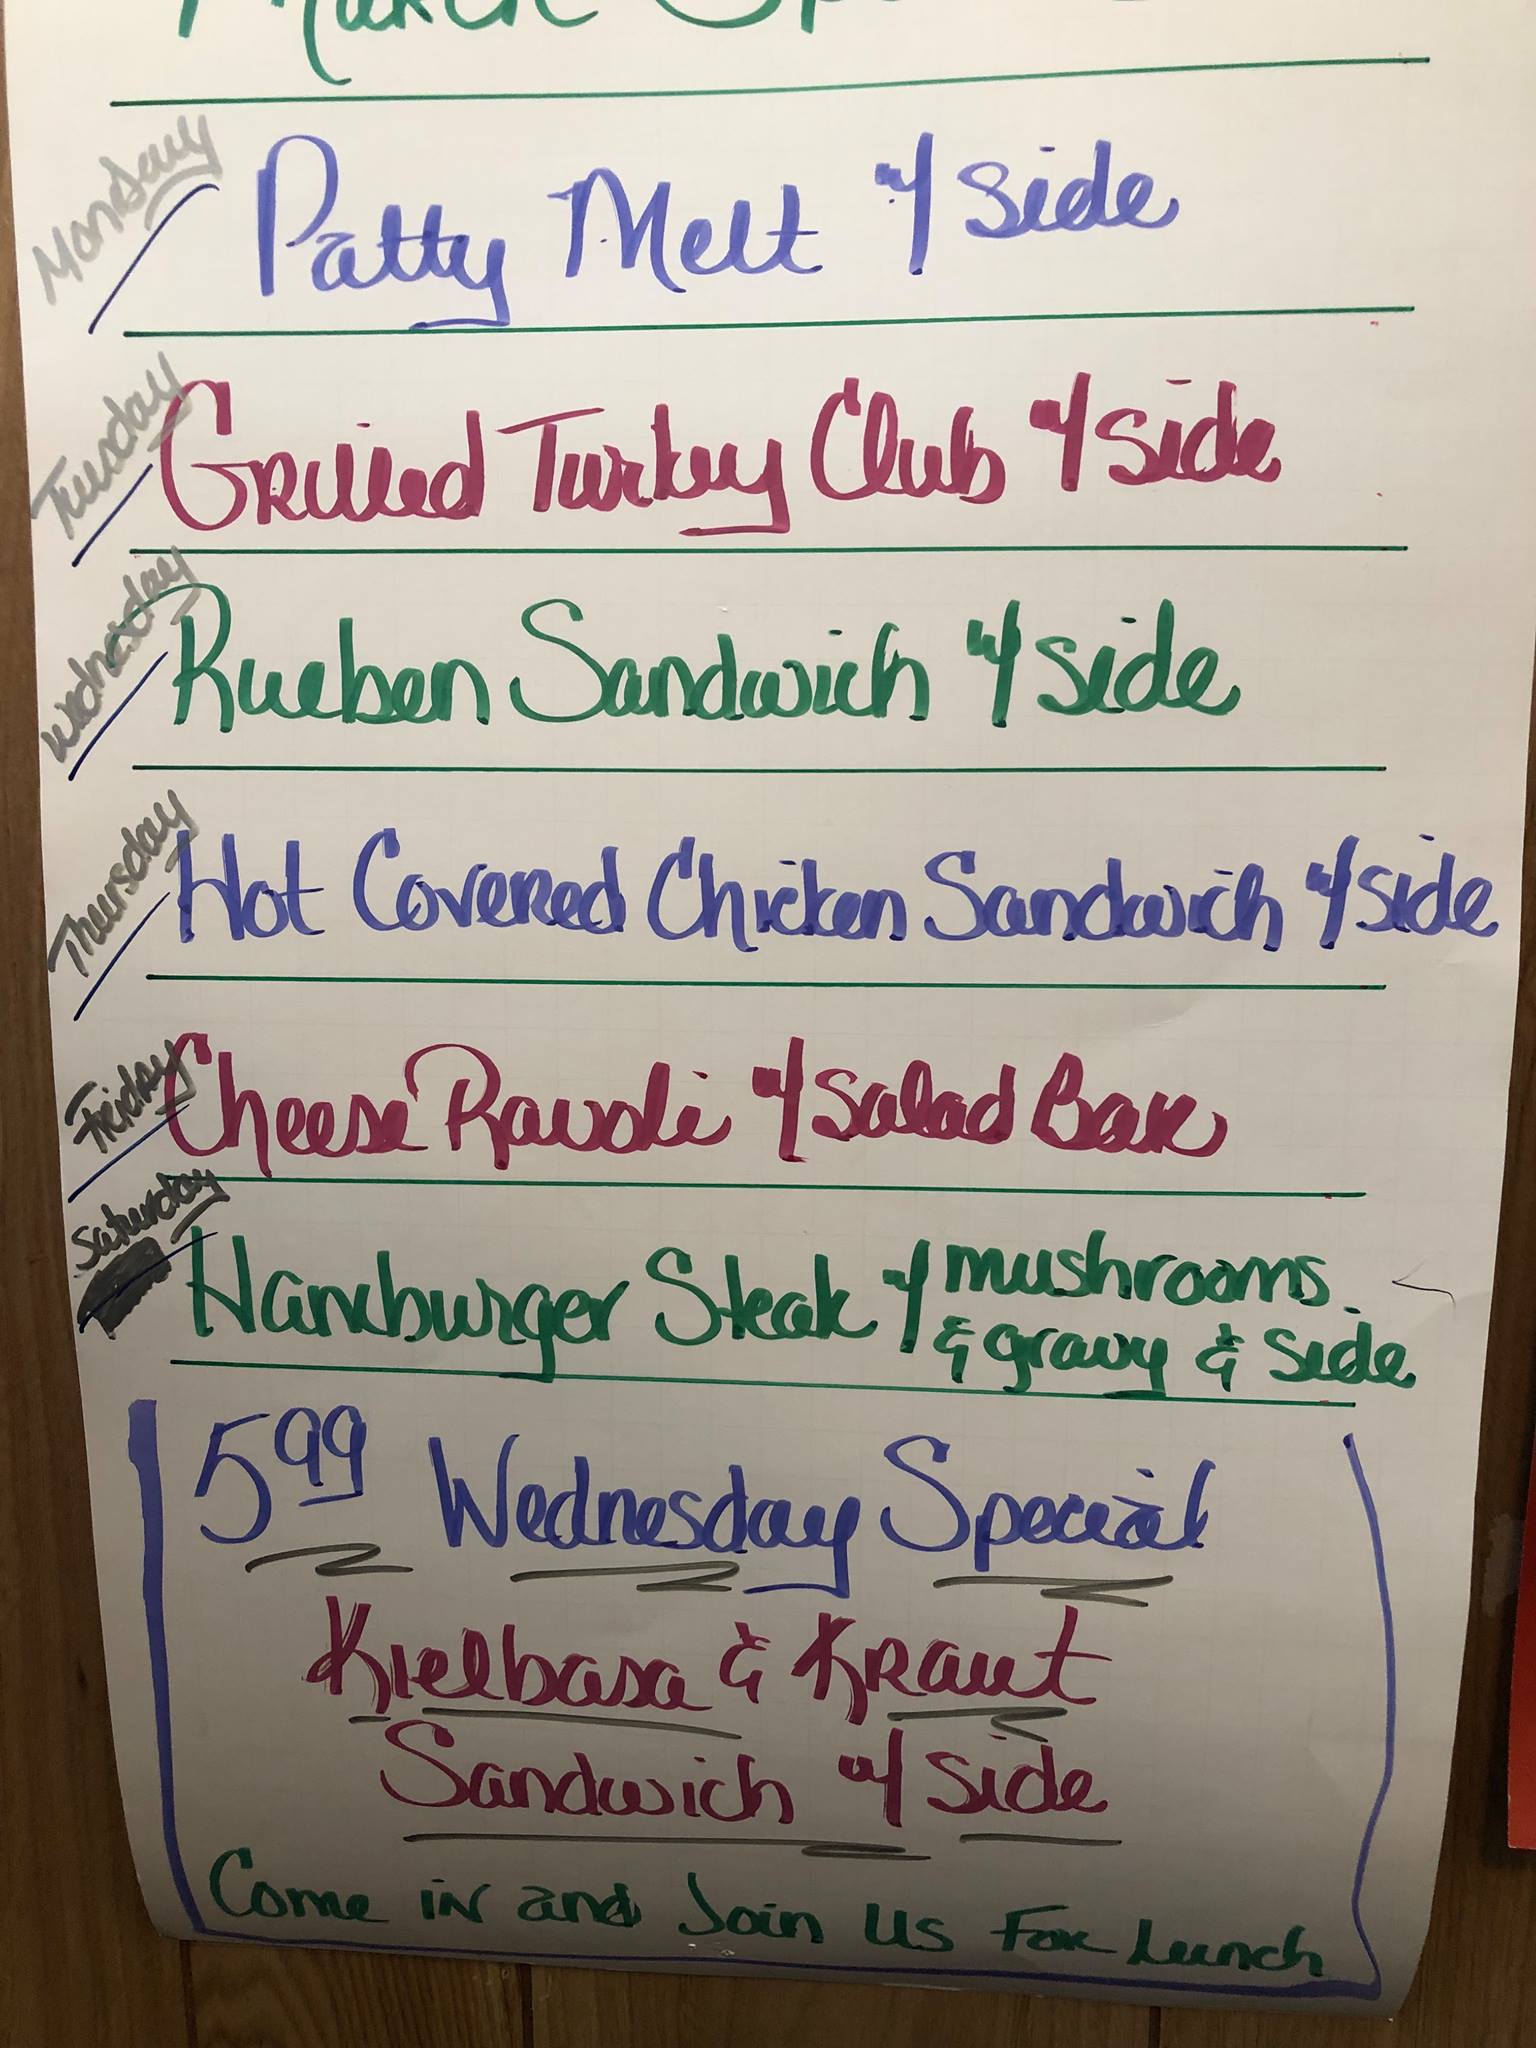 March
Monday
Patty Melt w/ side
Tuesday
Grilled Turkey Club w/ side
Wednesday
Rueben Sandwich w/ side
Thursday
Hot Covered Chicken Sandwich w/ side
Friday
Cheese Ravoli w/ Salad Bar
Saturday
Hamburger Steak w/ mushrooms
& gravy & side
5.99 Wednesday Special
Kielbasa & Kraut
Sandwich w/ side
Come in and Join Us For Lunch